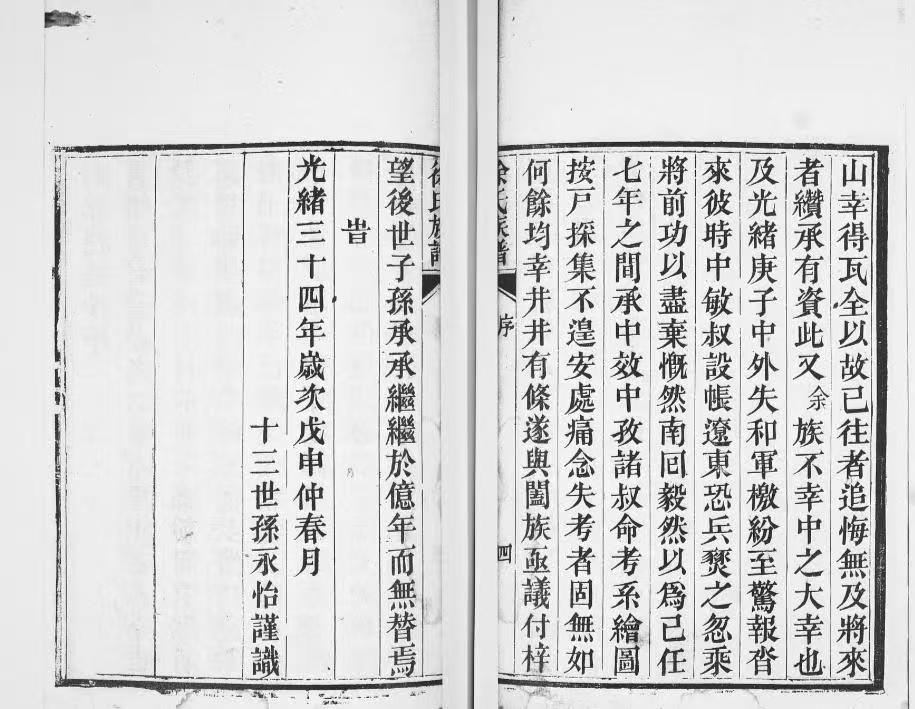 山幸得瓦全以故已往者追悔無及將來
者纘承有資此又余族不幸中之大幸也
及光緒庚子中外失和軍檄紛至驚報沓
來彼時中敏叔設帳遼東恐兵燹之忽乘
將前功以盡棄慨然南囘毅然以為己任
七年之間承中效中孜諸叔命考系繪圖
按戸探集不遑安處痛念失考者固無如
何餘均幸井井有條遂與闔族亟議付梓
徐氏族譜 序 四
徐氏族譜
望後世子孫承承繼繼於億年而無替焉
旹
光緒三十四年歲次戊申仲春月
十三世孫永怡謹識